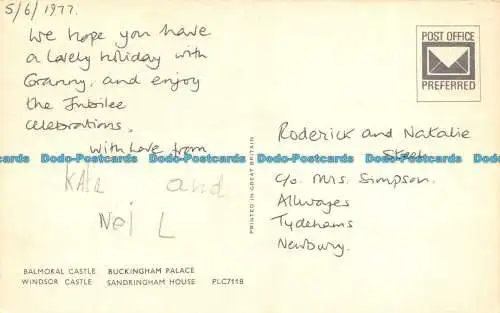 5/6/1977.
We hope you have
a lovely holiday with
Granny, and enjoy
the Jubilee
celebrations.
with love from
Kate and
Neil
BALMORAL CASTLE BUCKINGHAM PALACE
WINDSOR CASTLE SANDRINGHAM HOUSE PLC7118
PRINTED IN GREAT BRITAIN
POST OFFICE
PREFERRED
Roderick and Natalie
c/o Mrs. Simpson.
Allwayes
Tydehams
Newbury.
Dodo-Postcards Dodo-Postcards Dodo-Postcards Dodo-Postcards Dodo-Postcards